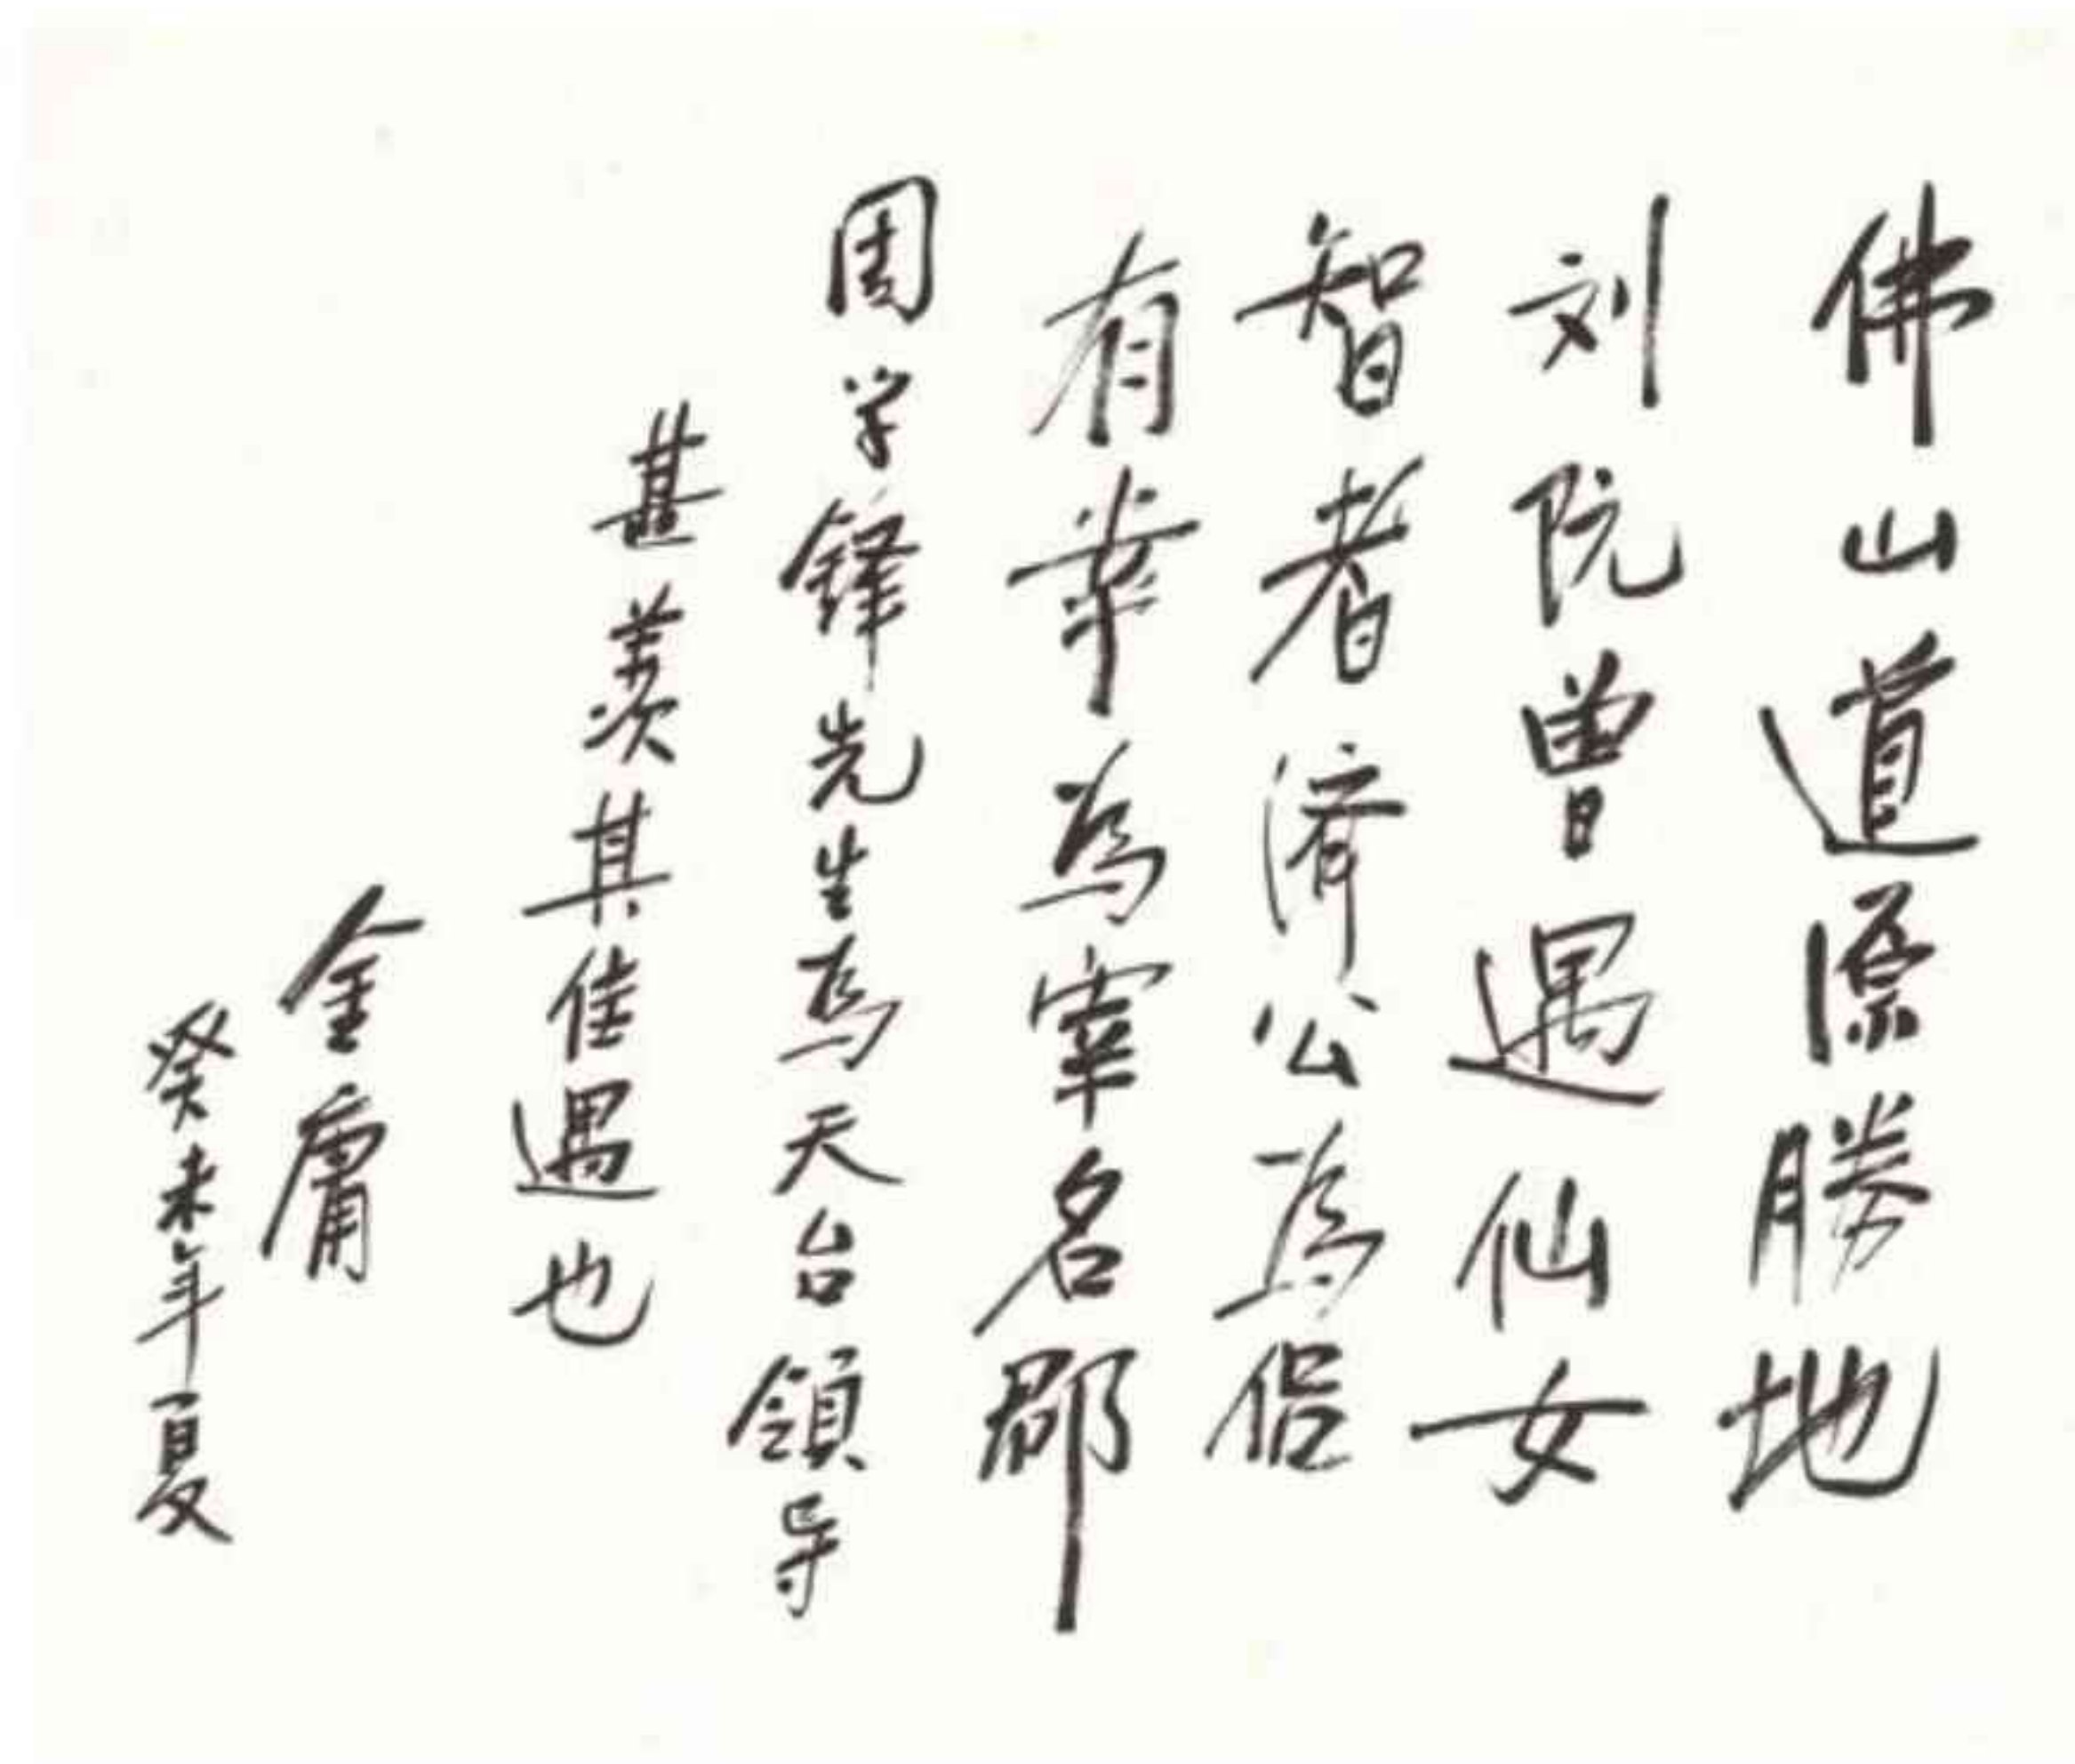 佛山道源勝地
刘阮曾遇仙女
智者济公為侣
有幸為宰名郡
周学锋先生為天台領导
甚羡其佳遇也
金庸
癸未年夏